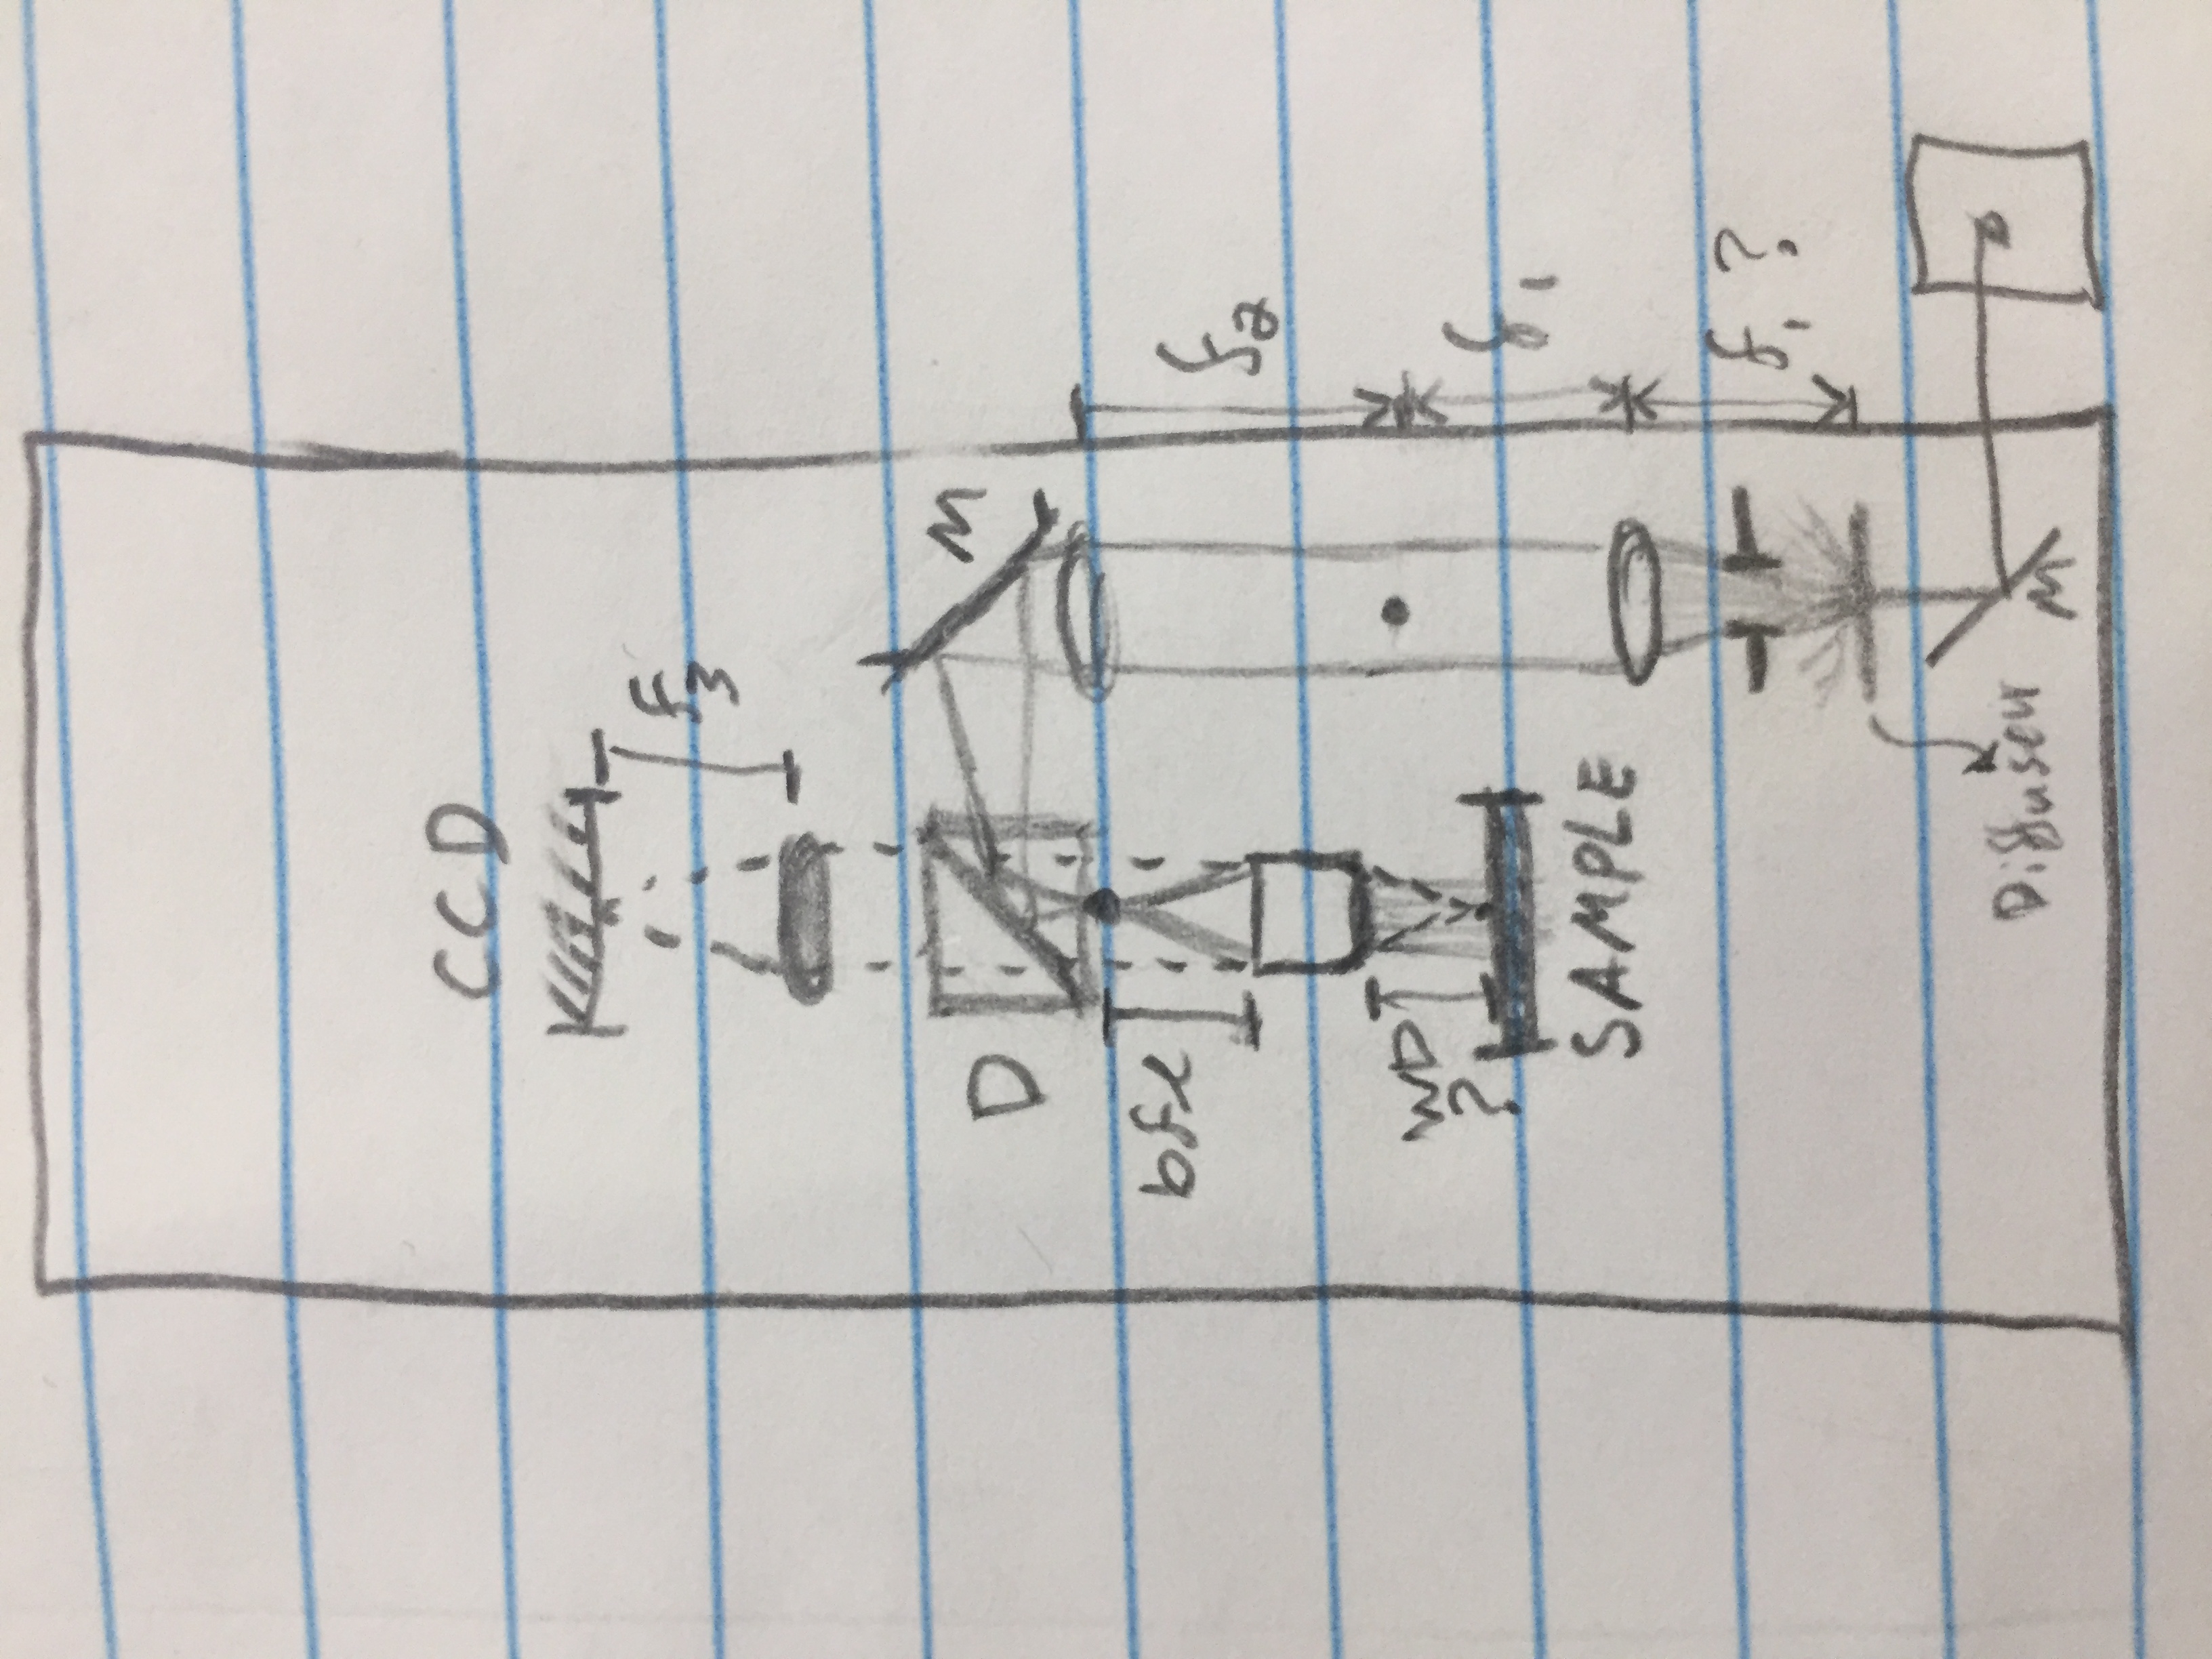 CCD
f3
M
D
bfl
f2
WD
?
f1
SAMPLE
f1 ?
Diffuser
M